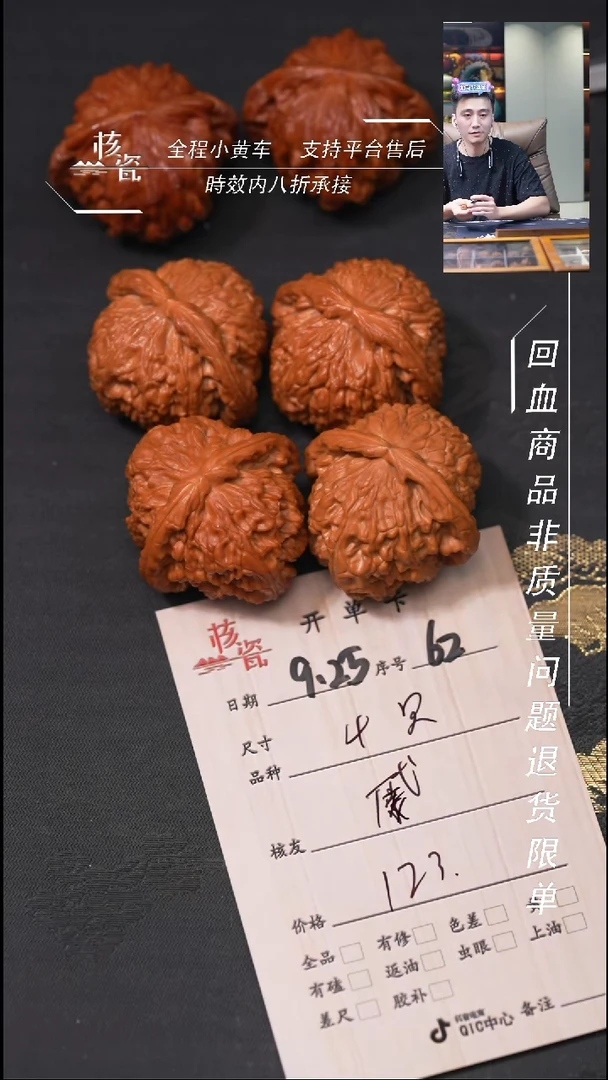 核瓷
全程小黄车 支持平台售后
時效内八折承接
回血商品非质量问题退货限单
核瓷
开单卡
日期 9.25 序号 62
尺寸 4只
品种
核友
123.
价格
全品 有修 色差
有磕 返油 虫眼 上油
差尺 胶补
抖音电商
QIC中心 备注